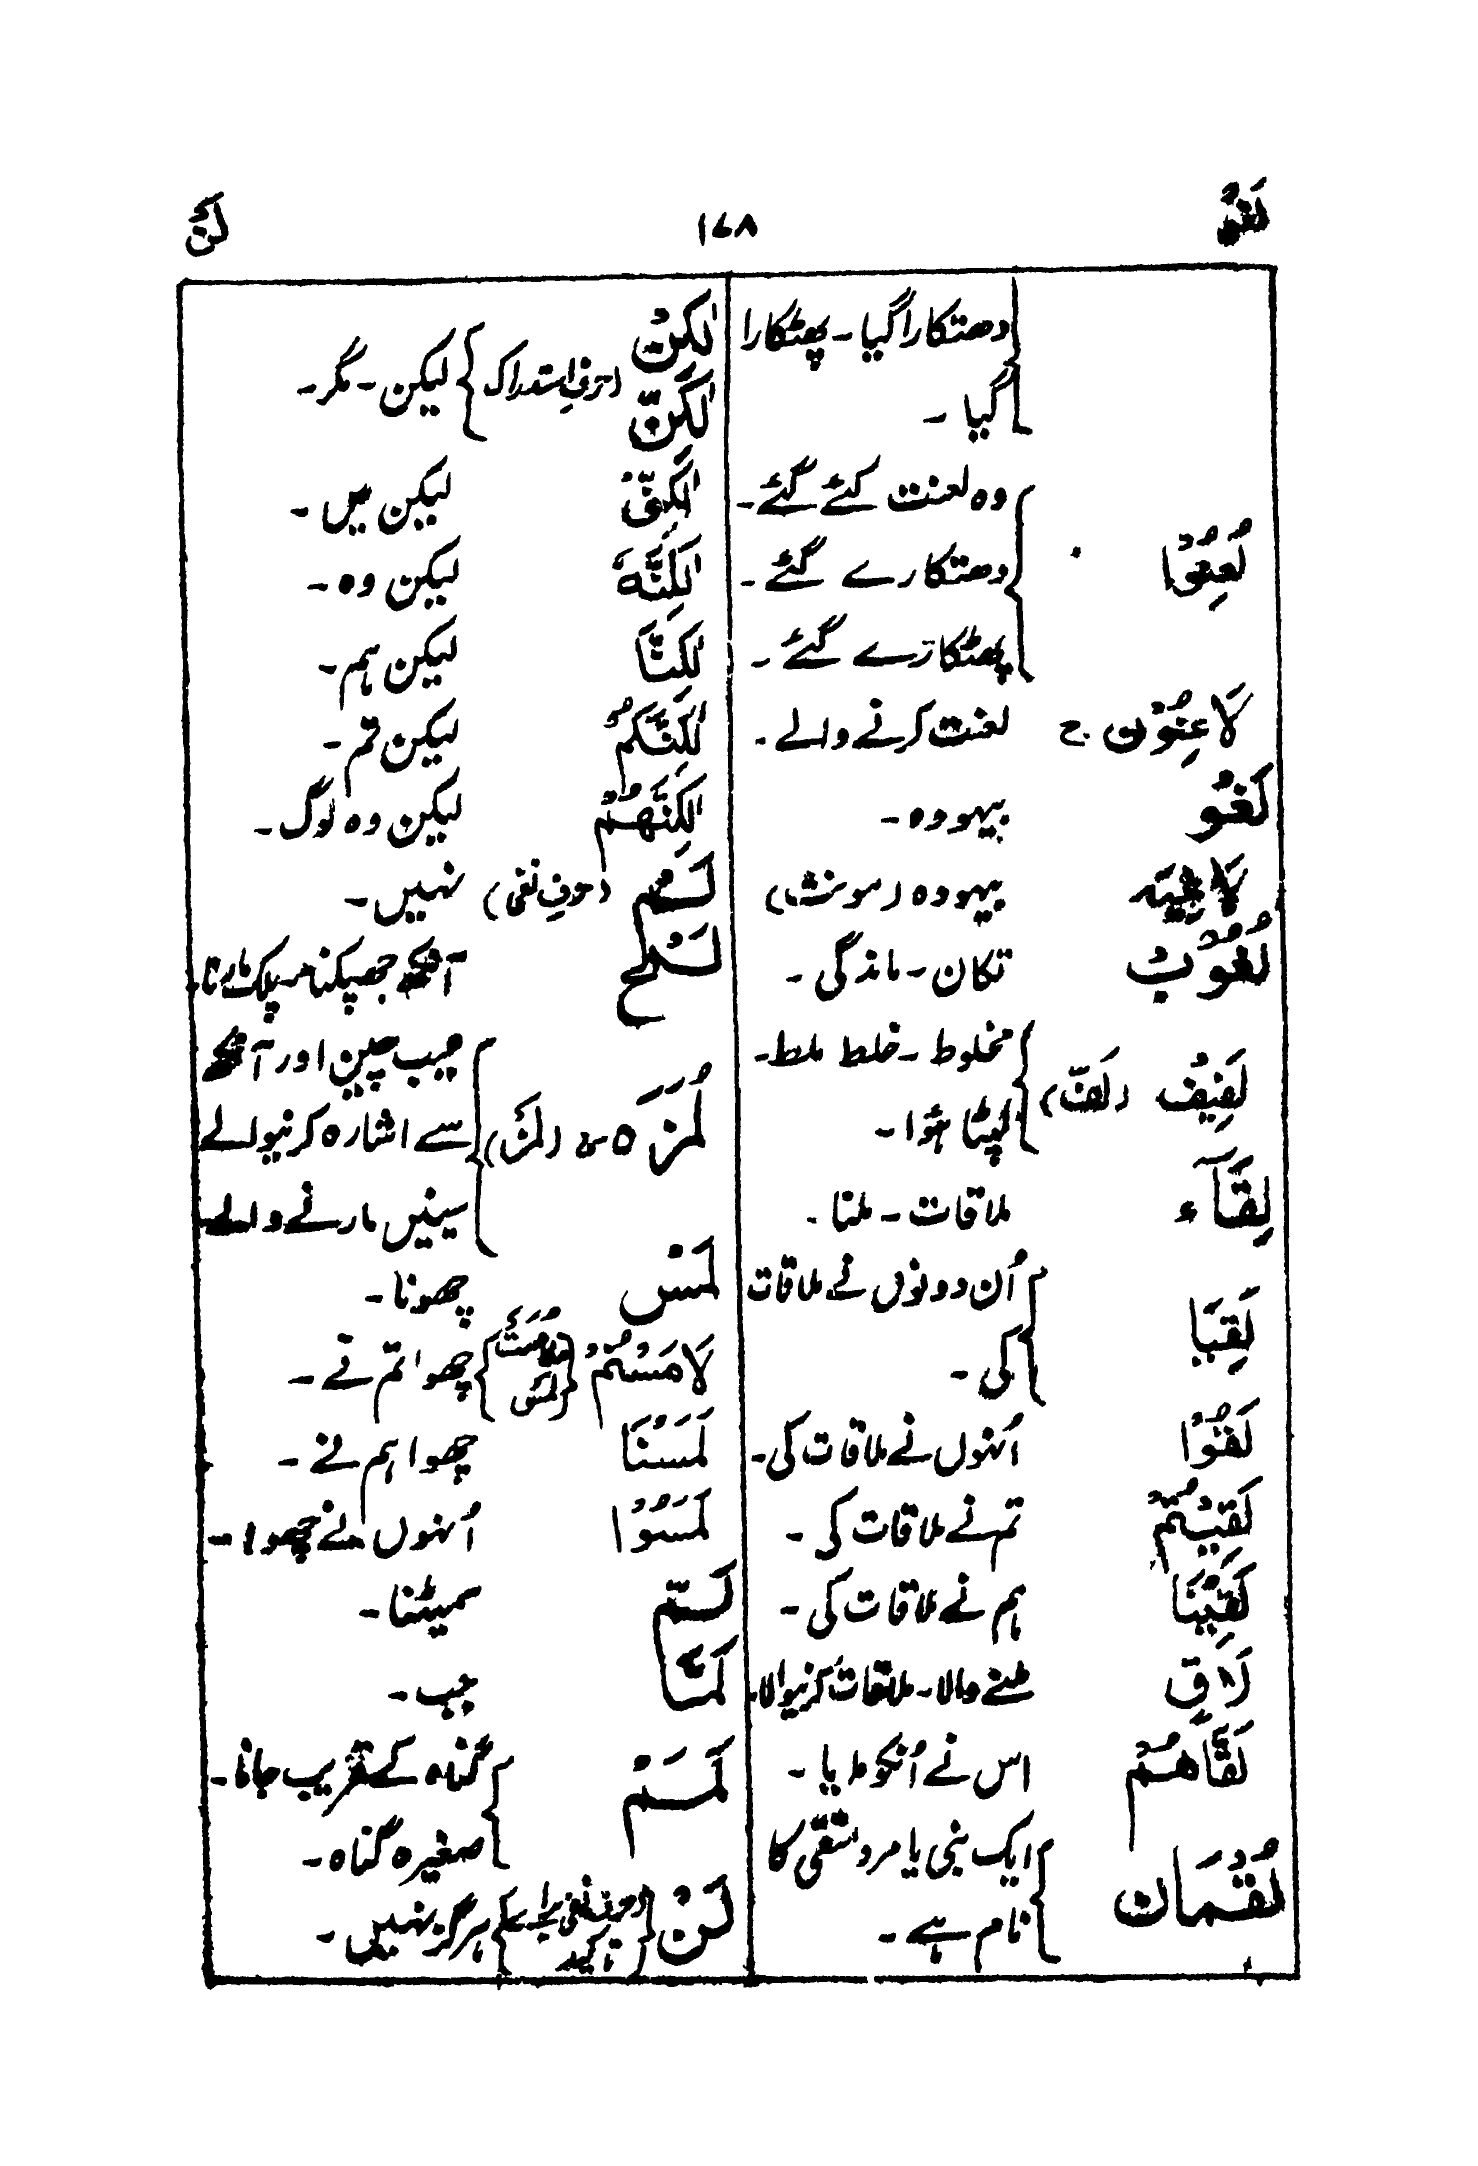 لَغْو ۱۷۸ لَنْ
دھتکارا گیا ۔ پھٹکارا
گیا ۔
وہ لعنت کئے گئے ۔
لُعِنُوْا دھتکارے گئے ۔
پھٹکارے گئے ۔
لَاعِنُوْن ج لعنت کرنے والے ۔
لَغْو بیہودہ ۔
لَاغِيَة بیہودہ (مونث)
لُغُوْب تکان ۔ ماندگی ۔
مخلوط ۔ خلط ملط ۔
لَفِيْف (لَفّ) لپٹا ہؤا ۔
لِقَآء ملاقات ۔ ملنا ۔
اُن دونوں نے ملاقات
لَقِيَا کی ۔
لَقُوْا اُنہوں نے ملاقات کی ۔
لَقِيْتُمْ تم نے ملاقات کی ۔
لَقِيْنَا ہم نے ملاقات کی ۔
لَاقٍ ملنے والا ۔ ملاقات کرنیوالا ۔
لَقَّاهُمْ اس نے اُنکو ملایا ۔
ایک نبی یا مرد متقی کا
لُقْمَان نام ہے ۔
لٰكِنْ
لٰكِنَّ (حرفِ استدراک لیکن ۔ مگر ۔
لٰكِنِّيْ لیکن میں ۔
لٰكِنَّهٗ لیکن وہ ۔
لٰكِنَّا لیکن ہم ۔
لٰكِنَّكُمْ لیکن تم ۔
لٰكِنَّهُمْ لیکن وہ لوگ ۔
لَمْ (حرفِ نفی) نہیں ۔
لَمْح آنکھ جھپکنا ۔ پلک مارنا ۔
عیب چین اور آنکھ
لُمَزَة س (لَمَزَ) سے اشارہ کرنیوالے
سینیں مارنے والے
لَمْس چھونا ۔
لَامَسْتُمْ لَمَسَ چھوا تم نے ۔
لَمَسْنَا چھوا ہم نے ۔
لَمَسُوْا اُنہوں نے چھوا ۔
لَمّ سمیٹنا ۔
لَمَّا جب ۔
گناہ کے قریب جانا ۔
لَمَم صغیرہ گناہ ۔
لَنْ (حرف نفی برائے تاکید ہرگز نہیں ۔